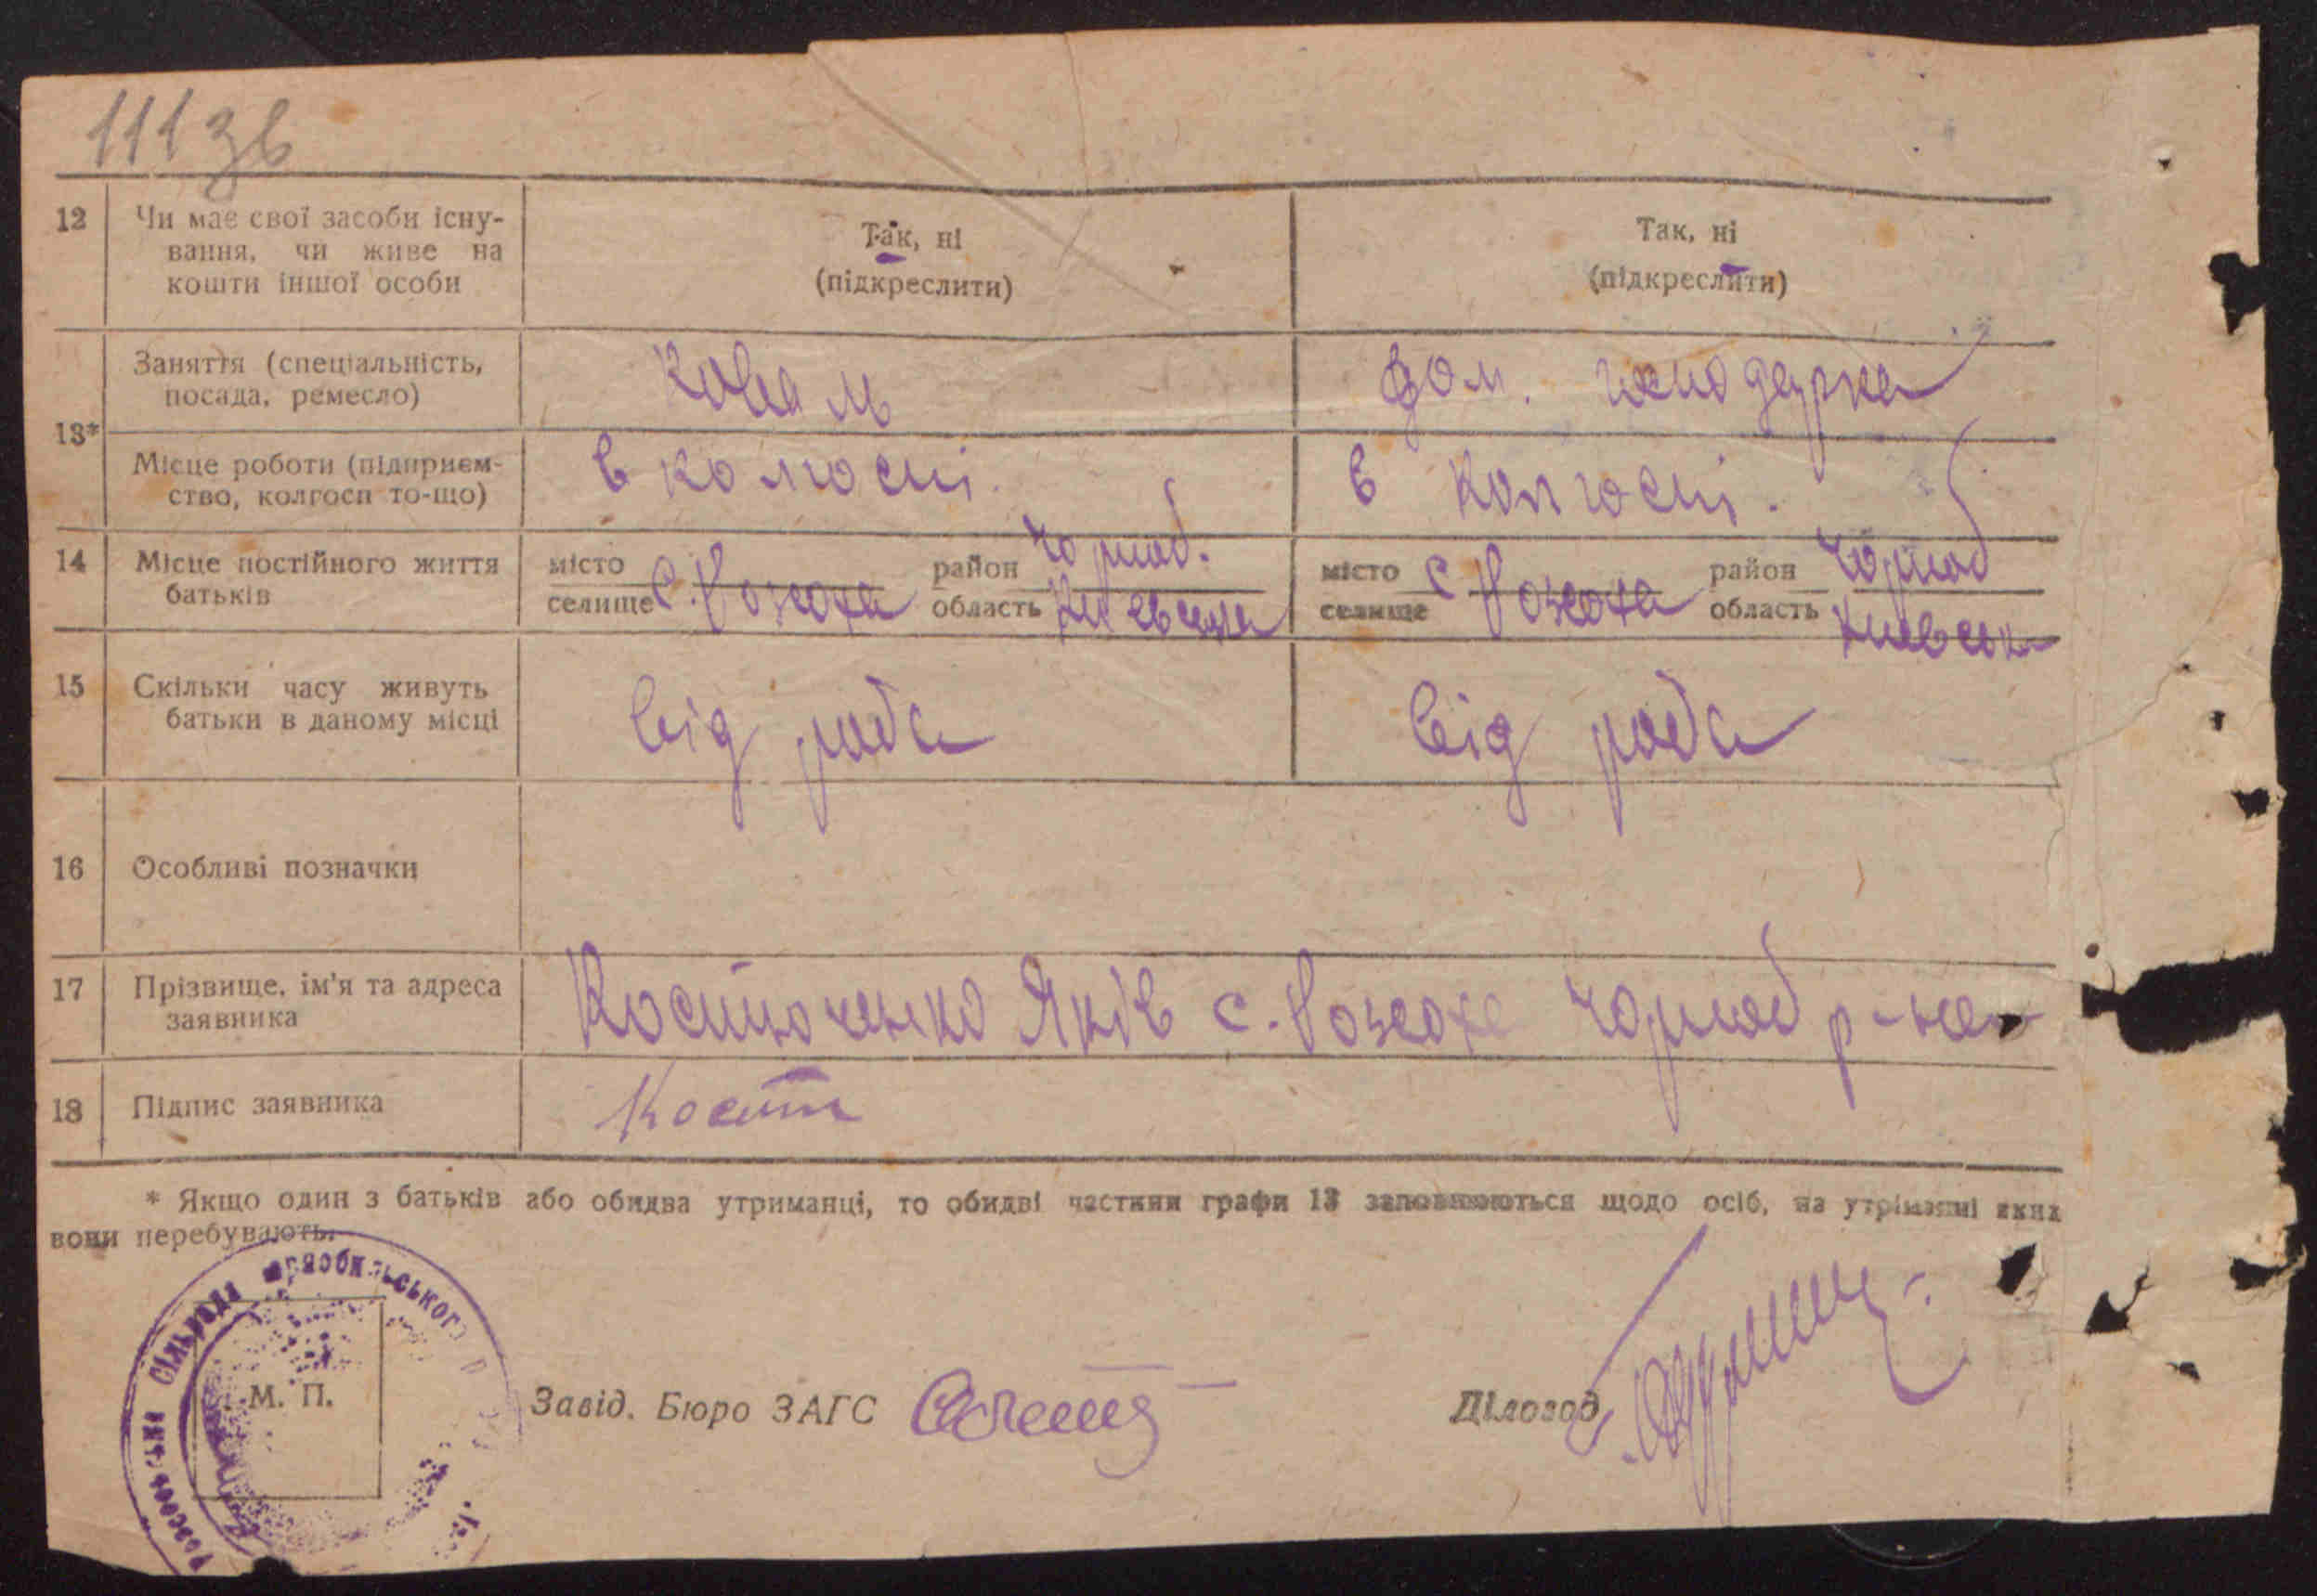 111 зв
12 Чи має свої засоби існу-
вання, чи живе на
кошти іншої особи
Так, ні
(підкреслити)
Так, ні
(підкреслити)
13*
Заняття (спеціальність,
посада, ремесло)
Коваль
дом. господарка
Місце роботи (підприєм-
ство, колгосп то-що)
в колгоспі.
в колгоспі.
14 Місце постійного життя
батьків
місто
селище с. Розсоха
район Чорноб.
область Київська
місто
селище с Розсоха
район Чорноб
область Київськ
15 Скільки часу живуть
батьки в даному місці
від роду
від роду
16 Особливі позначки
17 Прізвище, ім'я та адреса
заявника
Костюченко Яків с. Розсоха Чорноб р-на
18 Підпис заявника
Кост
* Якщо один з батьків або обидва утриманці, то обидві частини графи 13 заповнюються щодо осіб, на утріманні яких
вони перебувають.
Сільрада Чорнобильського
М. П.
Завід. Бюро ЗАГС
Діловод